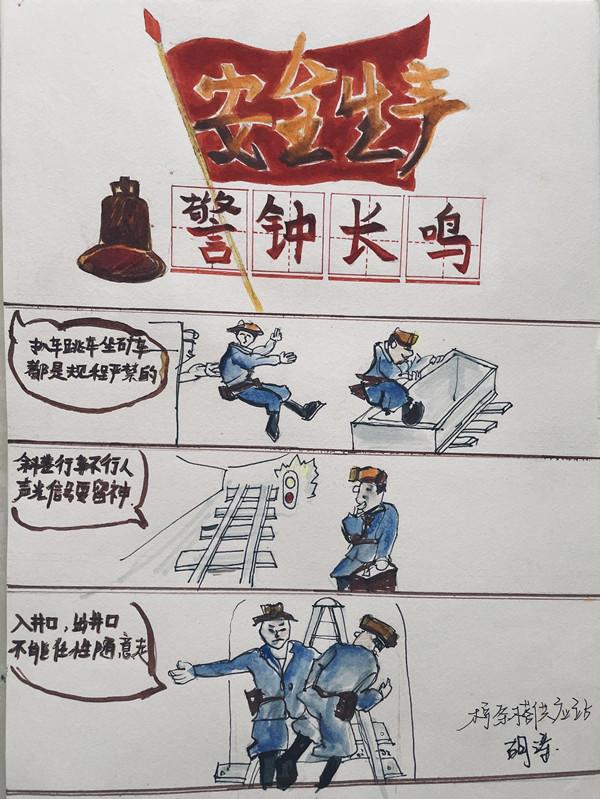 安全生产
警钟长鸣
扒车跳车坐矿车
都是规程严禁的
斜巷行车不行人
声光信号要留神
入井口，出井口
不能任性随意走
供应站